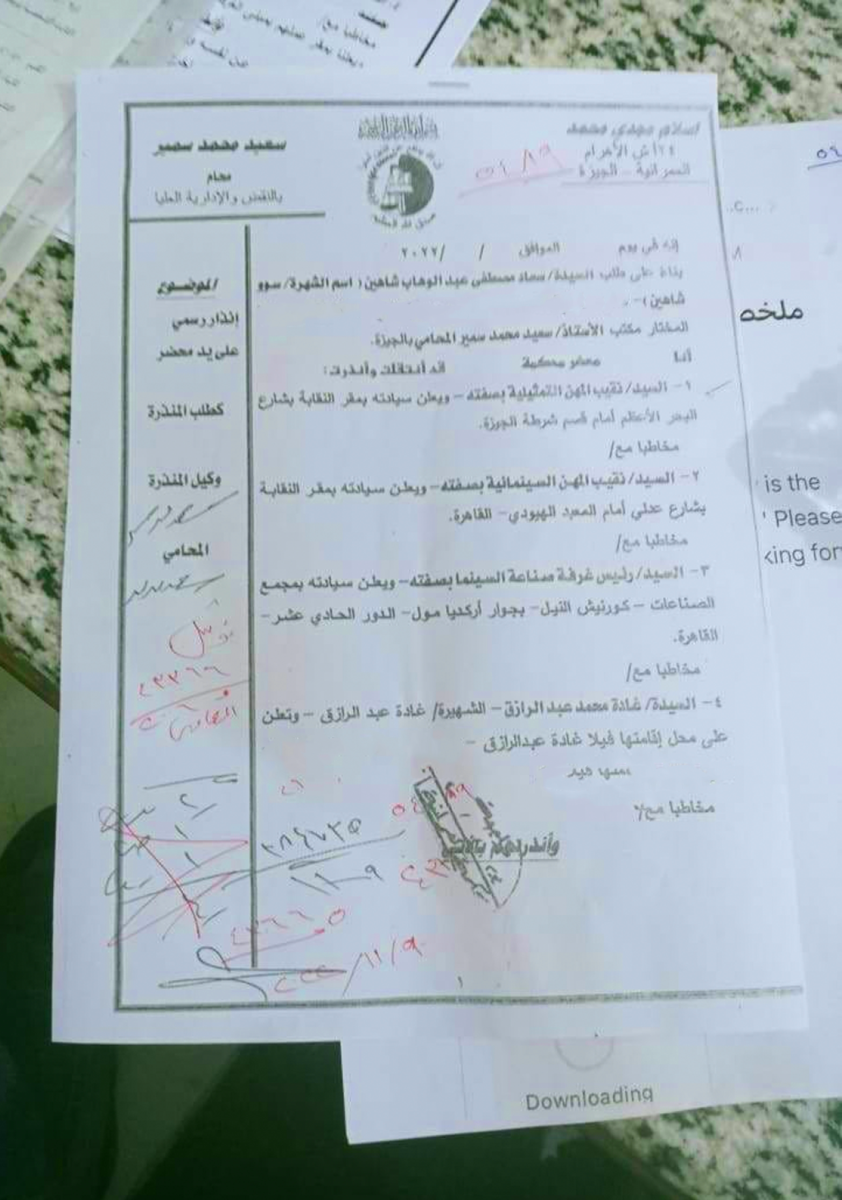 إسلام مجدي محمد
٢٤أ ش الأهرام
العمرانية – الجيزة
٥٤٨٩
سعيد محمد سمير
محام
بالنقض والإدارية العليا
إنه في يوم الموافق / /٢٠٢٢
بناءً على طلب السيدة/ سعاد مصطفى عبد الوهاب شاهين ( اسم الشهرة/ سوو
شاهين )- .
المختار مكتب الأستاذ/ سعيد محمد سمير المحامي بالجيزة.
أنا محضر محكمة قد أنتقلت وأنذرت:
١- السيد/ نقيب المهن التمثيلية بصفته – ويعلن سيادته بمقر النقابة بشارع
البحر الأعظم أمام قسم شرطة الجيزة.
مخاطبا مع/
٢- السيد/ نقيب المهن السينمائية بصفته– ويعلن سيادته بمقر النقابة
بشارع عدلي أمام المعبد اليهودي– القاهرة.
مخاطبا مع/
٣- السيد/ رئيس غرفة صناعة السينما بصفته– ويعلن سيادته بمجمع
الصناعات – كورنيش النيل– بجوار أركديا مول– الدور الحادي عشر –
القاهرة.
مخاطبا مع/
٤- السيدة/ غادة محمد عبد الرازق – الشهيرة/ غادة عبد الرازق – وتعلن
على محل إقامتها فيلا غادة عبدالرازق –
مخاطبا مع/
وأنذرتهم بالآتي
١
الموضوع
إنذار رسمي
على يد محضر
كطلب المنذرة
وكيل المنذرة
المحامي
٤٣٣٦٦
٢٨٤٧٣٥
١١-٩
٢٠٢٢/١١/٩
ملخص
is the
Please
king for
Downloading